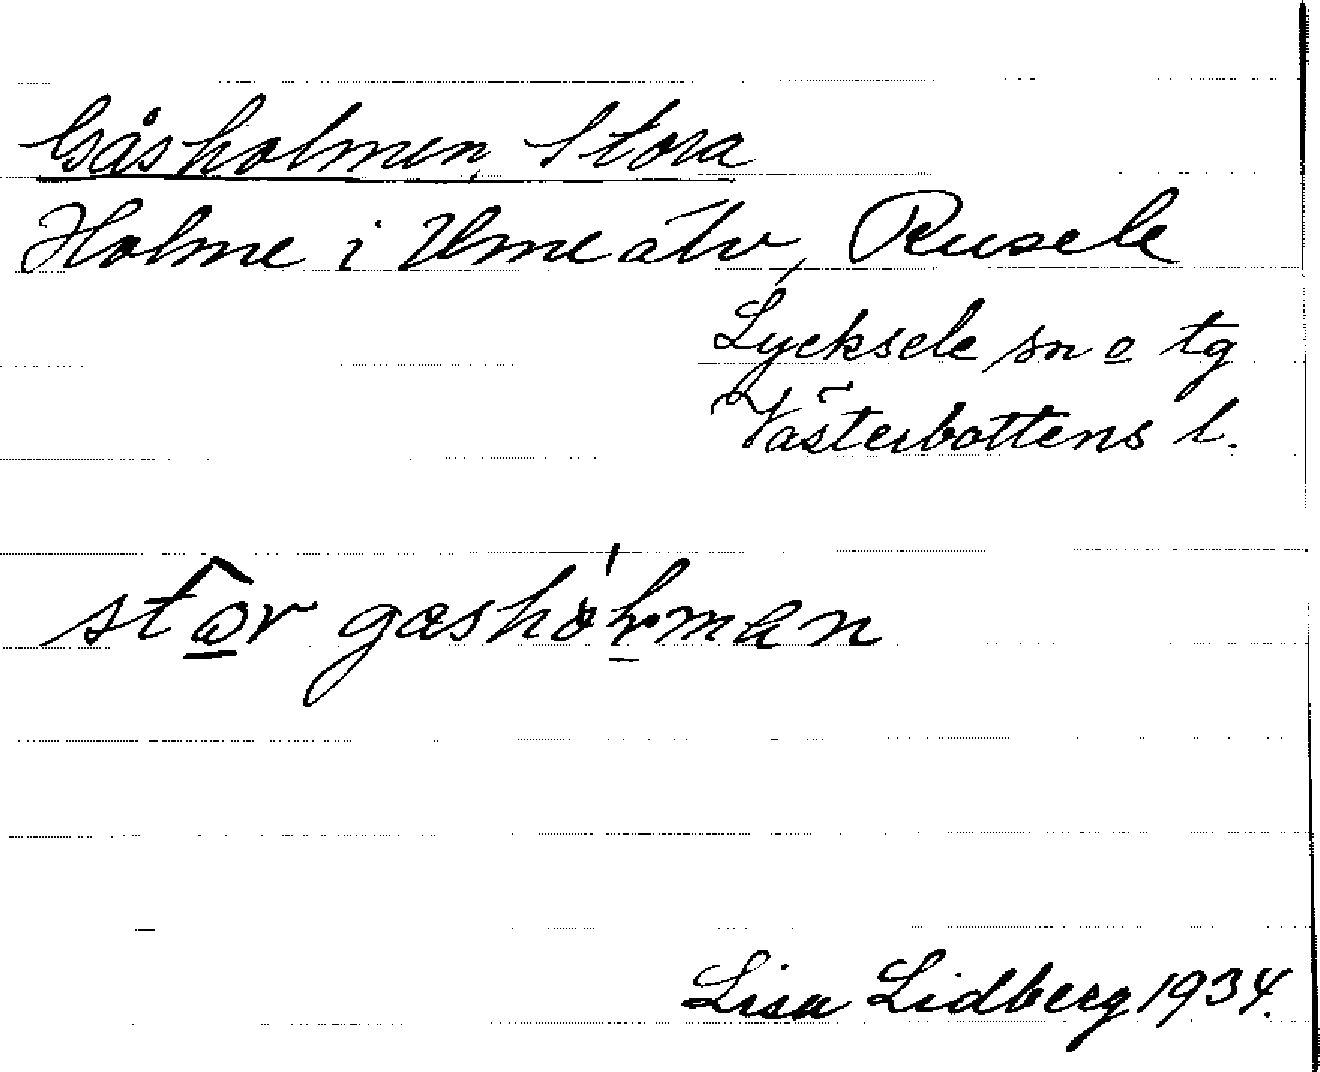 Gåsholmen, Stora
Holme i Umeälv, Rusele
Lycksele sn o tg
Västerbottens l.
Lisa Lidberg 1934.